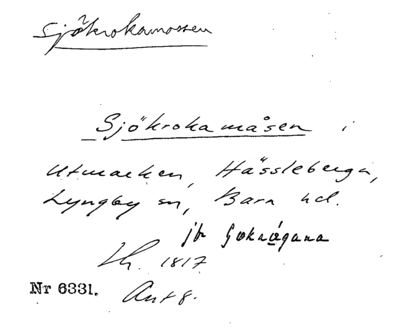 Sjökrokamossen
Sjökrokamåsen i
Utmarken, Hässleberga,
Lyngby sn, Bara hd.
jfr
Lh. 1817.
Nr 6331. Ant 8.